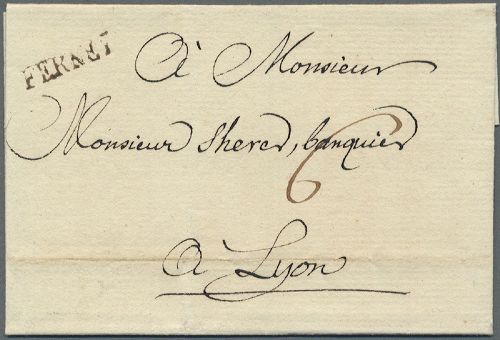 FERNEY
À Monsieur
Monsieur Sherer, banquier
6
à Lyon